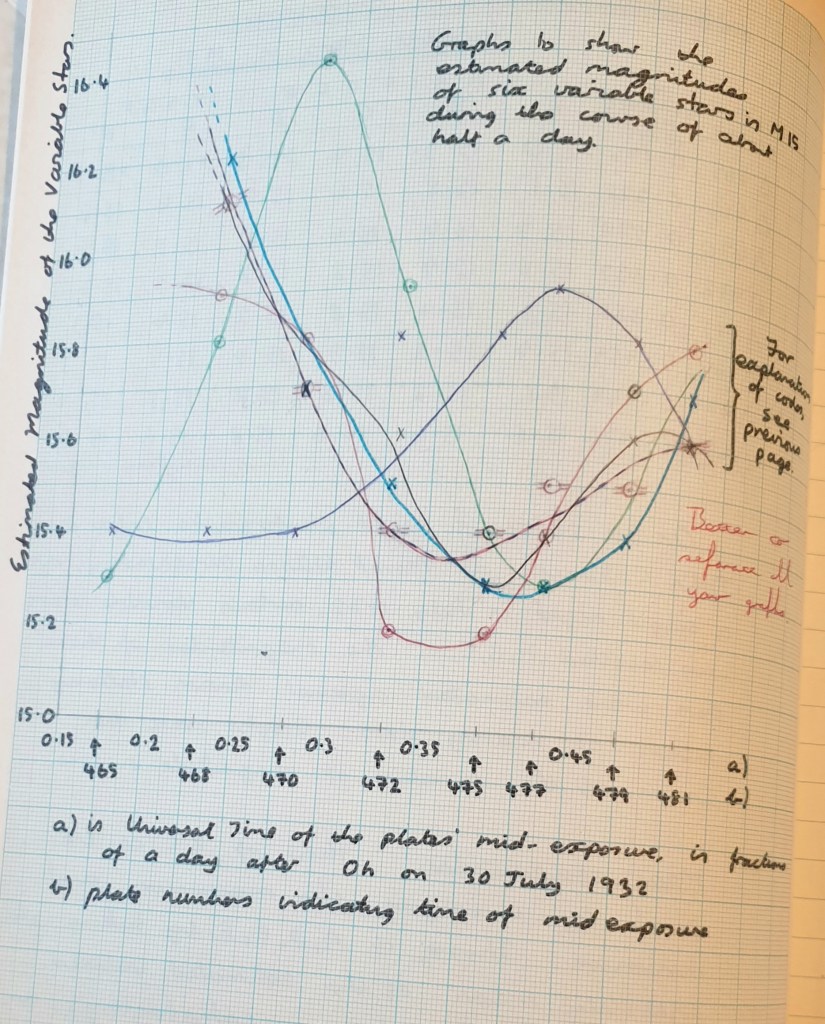 Graphs to show the
estimated magnitudes
of six variable stars in M15
during the course of about
half a day.
Estimated Magnitude of the Variable Stars.
16.4
16.2
16.0
15.8
15.6
15.4
15.2
15.0
For
explanation
of codes,
see
previous
page.
Better to
reference all
your graphs.
0.15 0.2 0.25 0.3 0.35 0.45 a)
465 468 470 472 475 477 479 481 b)
a) is Universal Time of the plates' mid-exposure, in fractions
of a day after 0h on 30 July 1932
b) plate numbers indicating time of mid exposure